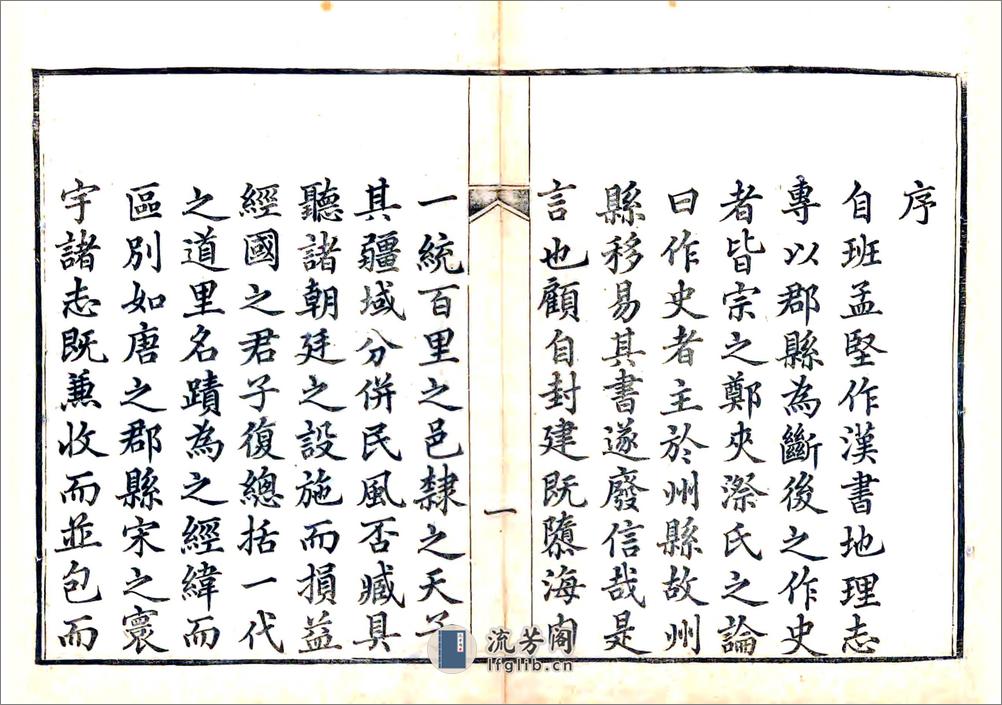 序
自班孟堅作漢書地理志
專以郡縣為斷後之作史
者皆宗之鄭夾漈氏之論
曰作史者主於州縣故州
縣移易其書遂廢信哉是
言也顧自封建既隳海內
一
一統百里之邑隸之天子
其疆域分併民風否臧具
聽諸朝廷之設施而損益
經國之君子復總括一代
之道里名蹟為之經緯而
區別如唐之郡縣宋之寰
宇諸志既兼收而並包而
流芳阁
lfglib.cn